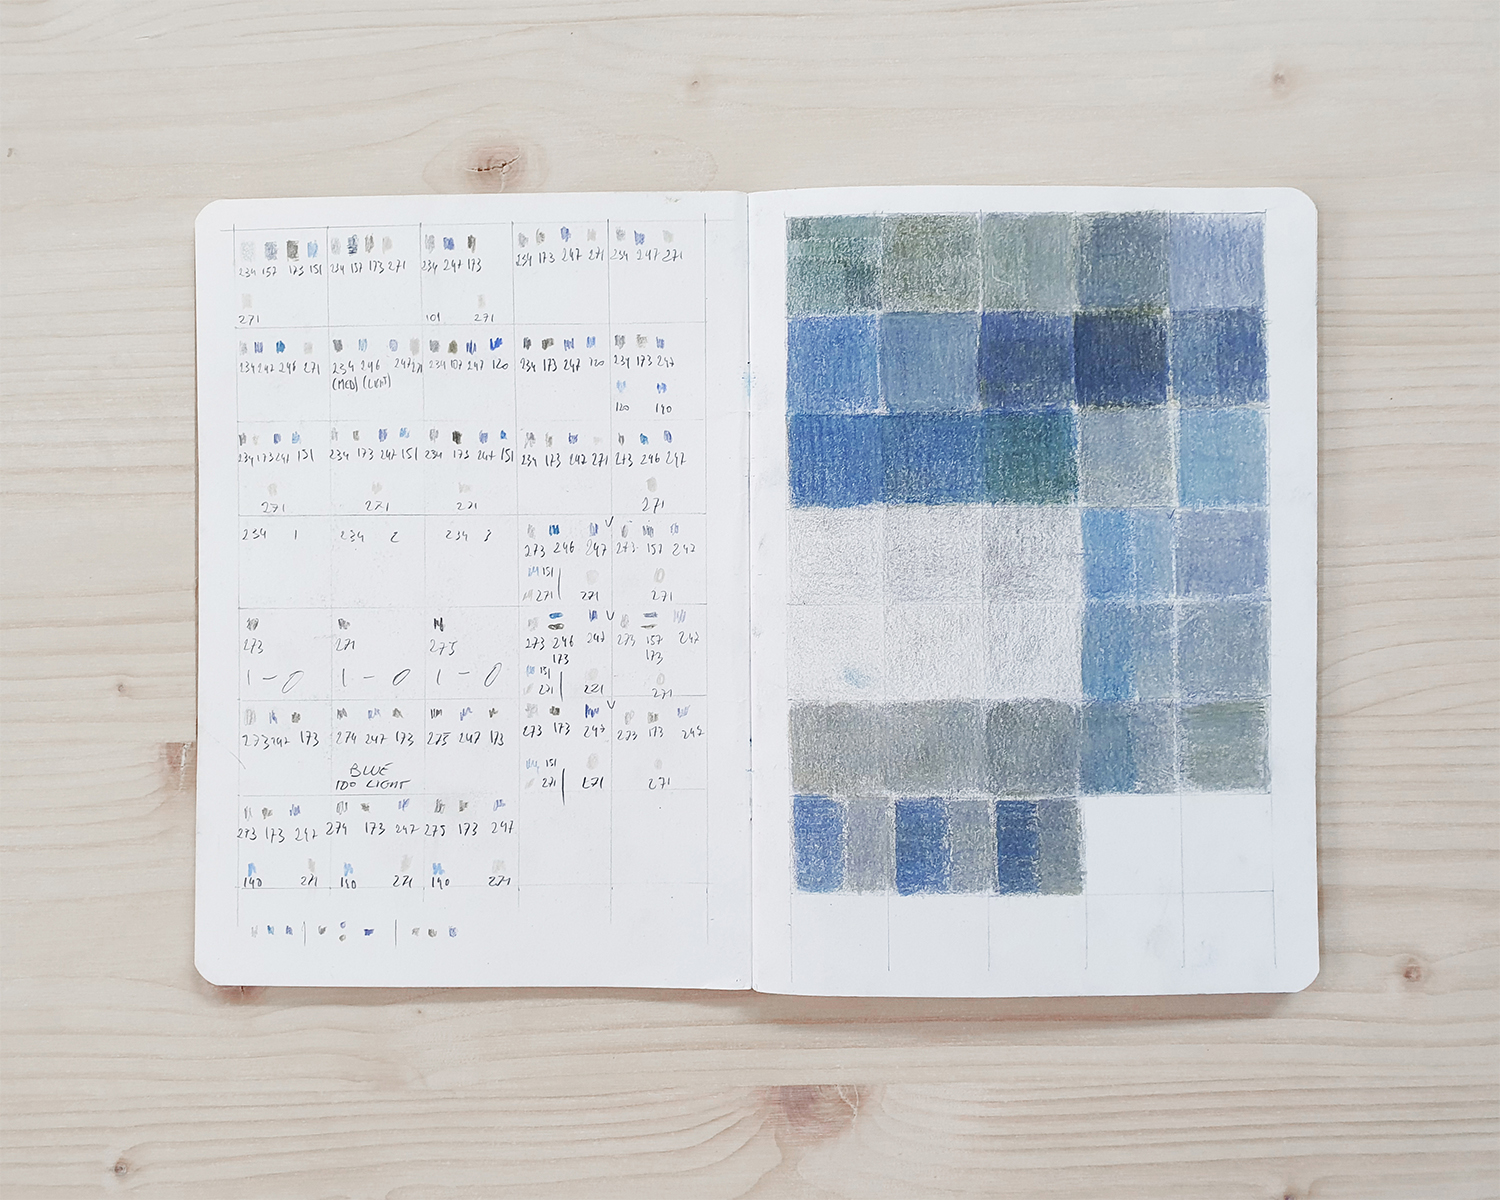 234 157 173 151 234 157 173 271 234 247 173 234 173 247 271 234 247 271
271 101 271
234 247 246 271 234 246 247 271 234 107 247 120 234 173 247 120 234 173 247
(MED) (LIGHT)
120 140
234 173 247 151 234 173 247 151 234 173 247 151 234 173 247 271 273 246 247
271 271 271 271
234 1 234 2 234 3
273 246 247 273 157 242
151
271 271 271
273 271 275
273 246 247 273 157 247
173 173
1 – 0 1 – 0 1 – 0
151
271 271 271
273 247 173 274 247 173 275 247 173 273 173 247 273 173 247
BLUE
TOO LIGHT
151
271 271 271
273 173 247 274 173 247 275 173 247
140 271 140 271 140 271